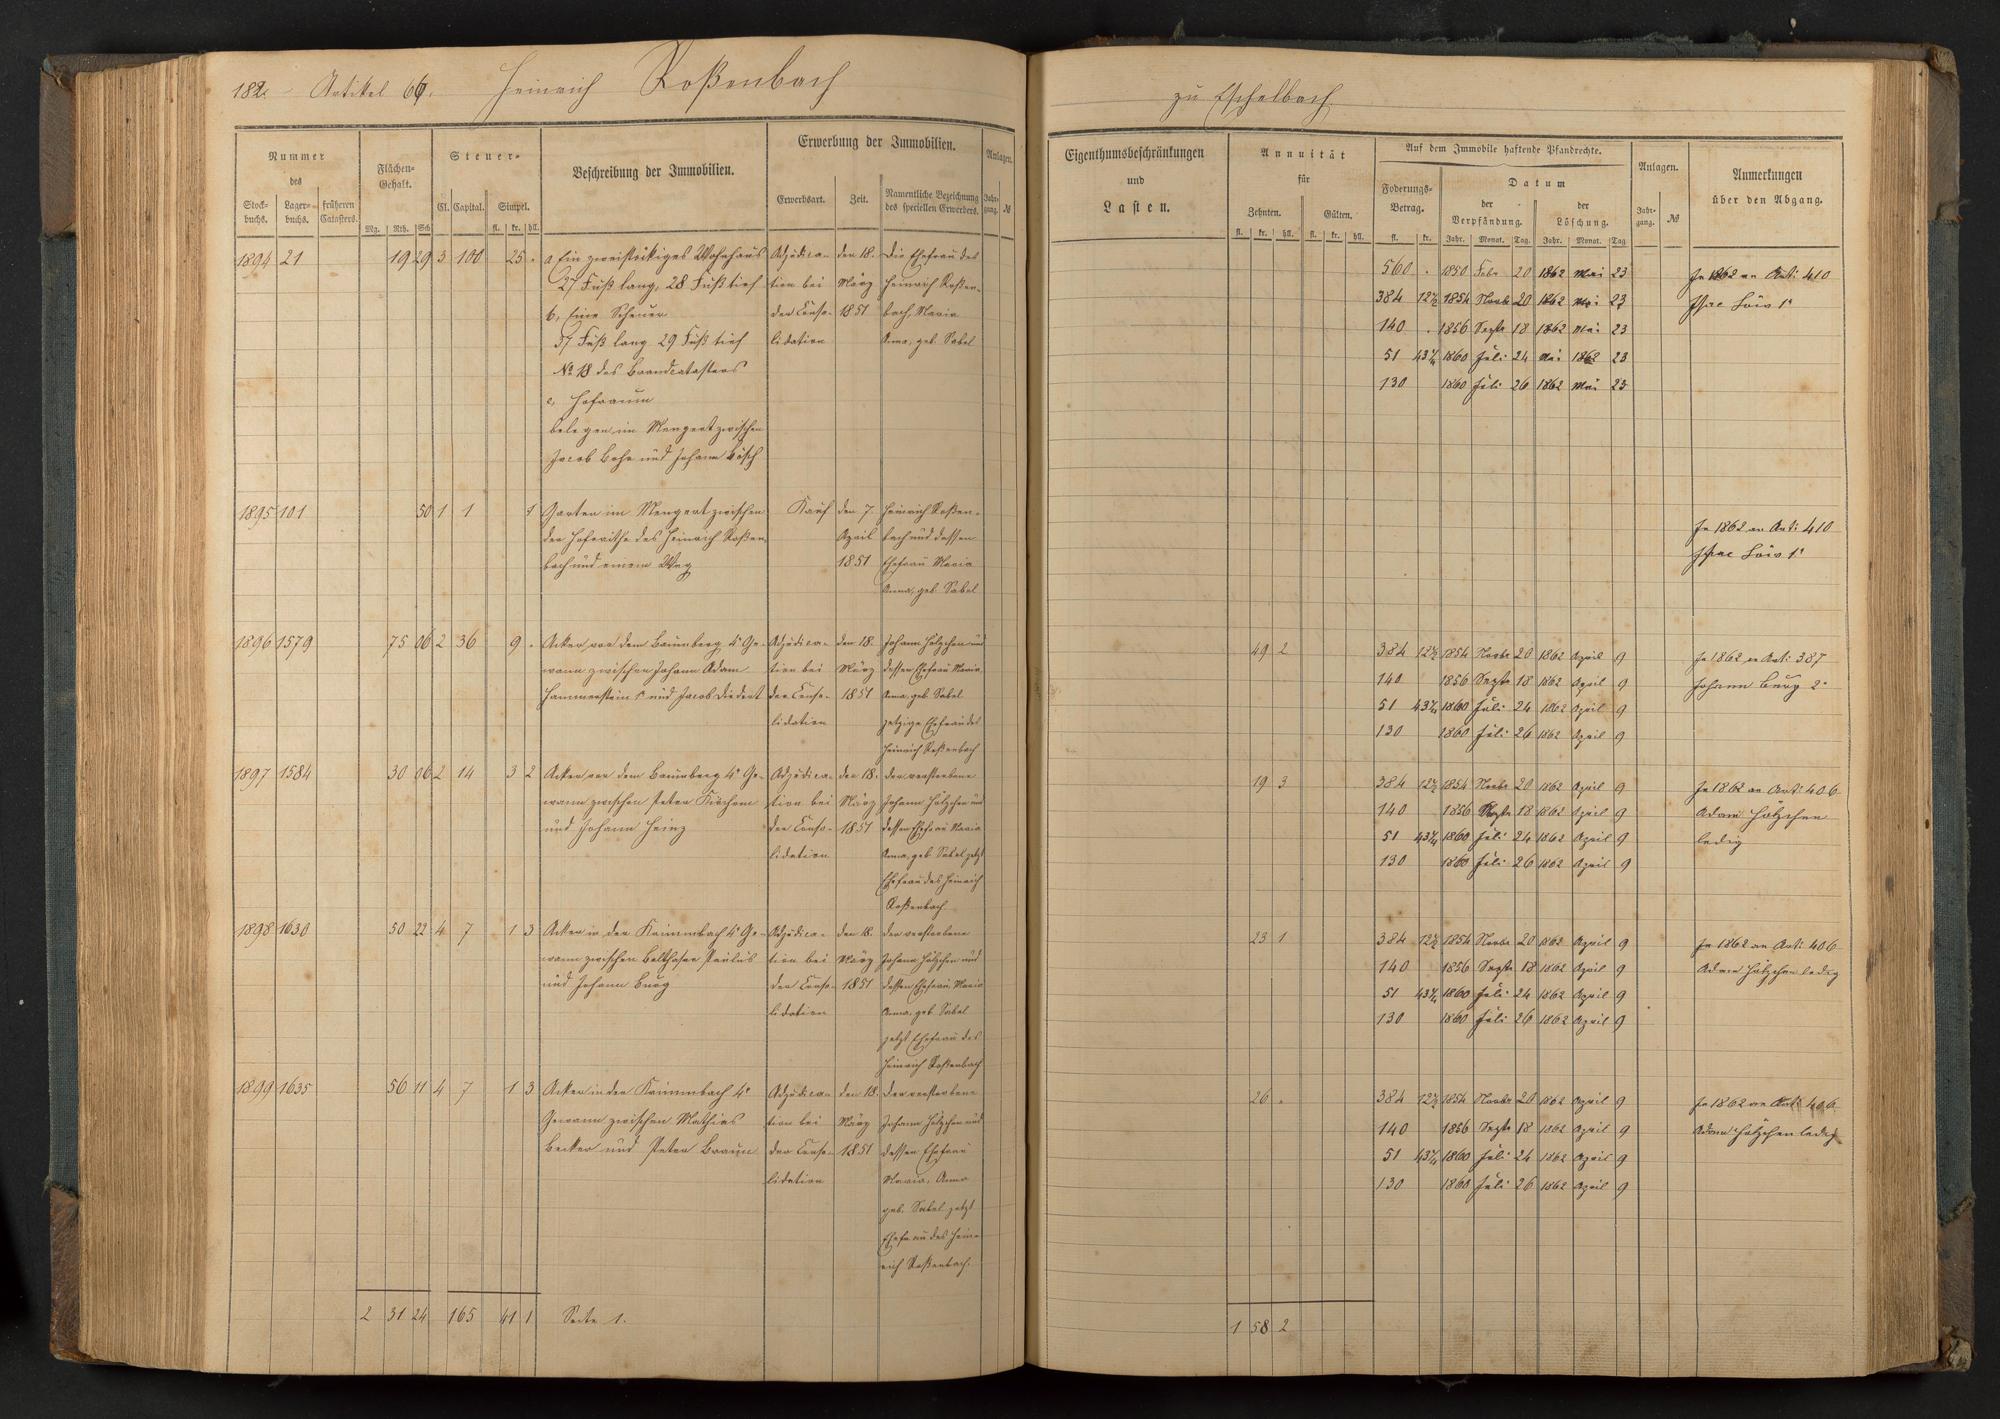 182. Artikel 66. Heinrich Roßenbach
zu Eschelbach.
Nummer des
Stockbuchs. Lagerbuchs. früheren Catasters.
Flächen-Gehalt.
Mg. Rth. Sch
Steuer-
Cl. Capital. Simpel.
fl. kr. hll.
Beschreibung der Immobilien.
Erwerbung der Immobilien.
Erwerbsart. Zeit. Namentliche Bezeichnung des speciellen Erwerbers.
Anlagen.
Jahrgang. №
Eigenthumsbeschränkungen
und
Lasten.
Annuität
für
Zehnten. Gülten.
fl. kr. hll. fl. kr. hll.
Auf dem Immobile haftende Pfandrechte.
Foderungs-Betrag.
fl. kr.
Datum
der Verpfändung. der Löschung.
Jahr. Monat. Tag. Jahr. Monat. Tag
Anlagen.
Jahrgang. №
Anmerkungen
über den Abgang.
1894 21 19 29 3 100 25 .
a Ein zweistöckiges Wohnhaus
27 Fuß lang, 28 Fuß tief
b, Eine Scheuer
37 Fuß lang 29 Fuß tief
№ 18 des Brandcatasters
c, Hofraum
belegen im Mengert zwischen
Jacob Bohr und Johann
Adjudica-
tion bei
der Conso-
lidation
den 18.
März
1851
Die Ehefrau des
Heinrich Roßen-
bach, Maria
Anna, geb. Sabel
560 . 1850 Febr 20 1862 Mai 23
384 12½ 1854 Novbr 20 1862 Mai 23
140 . 1856 Septr 18 1862 Mai 23
51 1860 Juli 24 Mai 1862 23
130 1860 Juli 26 1862 Mai 23
In 1862 an Arti: 410
1895 101 50 1 1 1
Garten im Mengert zwischen
der Hofraithe des Heinrich Roßen-
bach und einem Weg
Kauf
den 7.
April
1851
Heinrich Roßen-
bach und dessen
Ehefrau Maria
Anna, geb. Sabel
In 1862 an Arti: 410
1896 1579 75 06 2 36 9 .
Acker vor dem Baumberg 4r Ge-
wann zwischen Johann Adam
Hammerstein 1r und Jacob Diedert
Adjudica-
tion bei
der Conso-
lidation
den 18.
März
1851
Johann Hölzchen und
dessen Ehefrau Maria
Anna, geb. Sabel
jetzige Ehefrau des
Heinrich Roßenbach
49 2
384 12½ 1854 Novbr 20 1862 April 9
140 1856 Septr 18 1862 April 9
51 1860 Juli 24 1862 April 9
130 1860 Juli 26 1862 April 9
In 1862 an Arti: 387
Johann Burg 2r
1897 1584 30 06 2 14 3 2
Acker vor dem Baumberg 4r Ge-
wann zwischen Peter
und Johann Heinz
Adjudica-
tion bei
der Conso-
lidation
den 18.
März
1851
der verstorbene
Johann Hölzchen und
dessen Ehefrau Maria
Anna, geb Sabel jetzt
Ehefrau des Heinrich
Roßenbach
19 3
384 12½ 1854 Novbr 20 1862 April 9
140 1856 Septr 18 1862 April 9
51 1860 Juli 24 1862 April 9
130 1860 Juli 26 1862 April 9
In 1862 an Arti: 406
Adam Hölzchen
ledig
1898 1630 50 22 4 7 1 3
Acker in der Krimmbach 4r Ge-
wann zwischen Balthasar Paulus
und Johann Burg
Adjudica-
tion bei
der Conso-
lidation
den 18.
März
1851
der verstorbene
Johann Hölzchen und
dessen Ehefrau Maria
Anna, geb Sabel
jetzt Ehefrau des
Heinrich Roßenbach
23 1
384 12½ 1854 Novbr 20 1862 April 9
140 1856 Septr 18 1862 April 9
51 1860 Juli 24 1862 April 9
130 1860 Juli 26 1862 April 9
In 1862 an Arti: 406
Adam Hölzchen ledig
1899 1635 56 11 4 7 1 3
Acker in der Krimmbach 4r
Gewann zwischen Mathias
Becker und Peter Braun
Adjudica-
tion bei
der Conso-
lidation
den 18.
März
1851
der verstorbene
Johann Hölzchen und
dessen Ehefrau
Maria, Anna
geb. Sabel jetzt
Ehefrau des Hein-
rich Roßenbach.
26 .
384 12½ 1854 Novbr 20 1862 April 9
140 1856 Septr 18 1862 April 9
51 1860 Juli 24 1862 April 9
130 1860 Juli 26 1862 April 9
In 1862 an Arti: 406
Adam Hölzchen ledig
2 31 24 165 41 1 Seite 1.
1 58 2